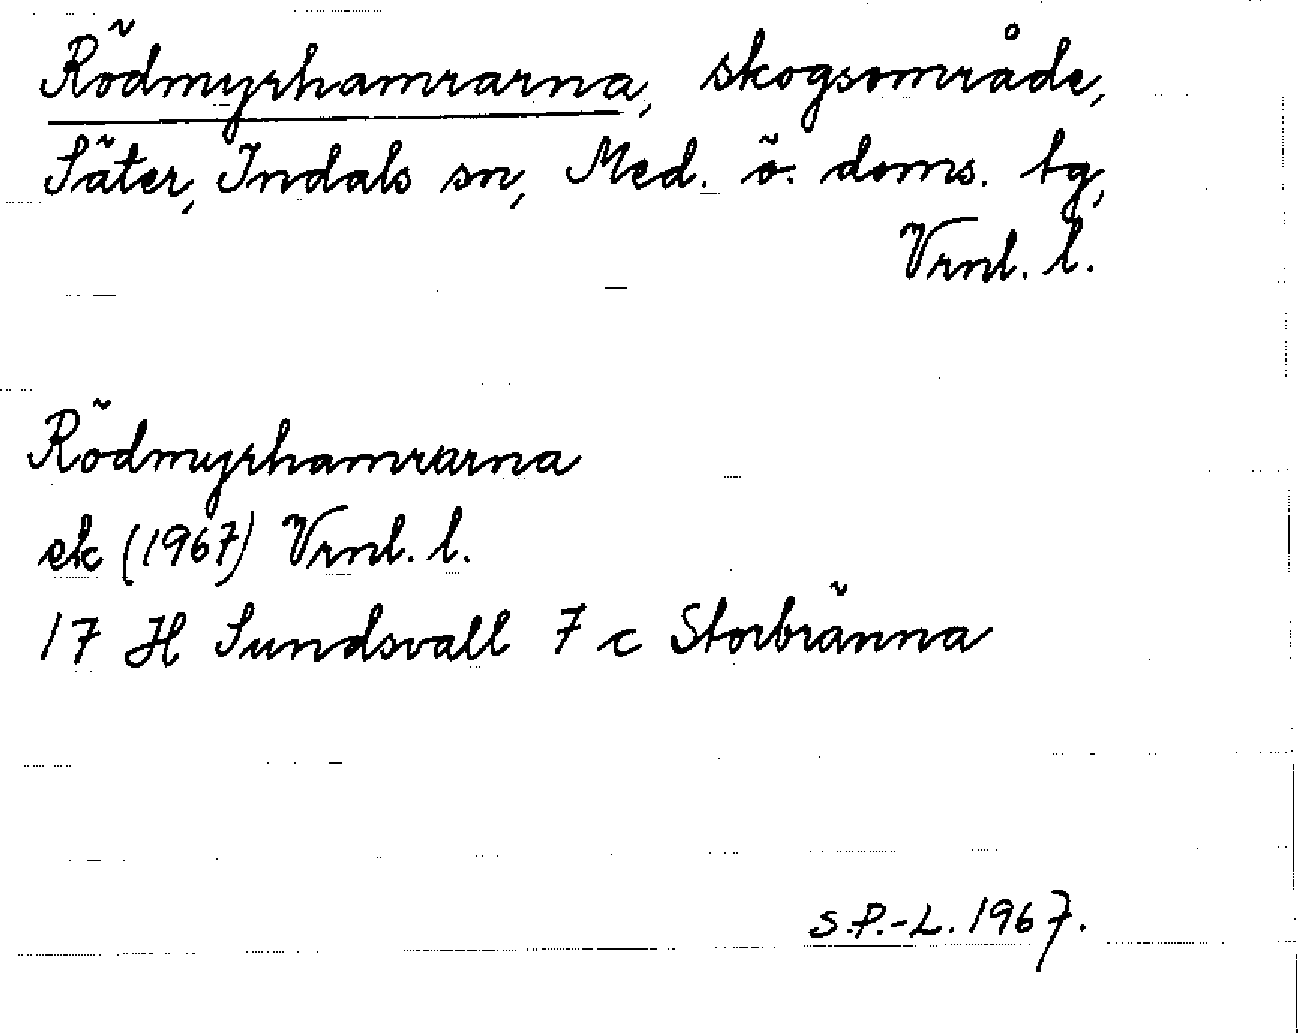 Rödmyrhamrarna, skogsområde,
Säter, Indals sn, Med. ö. doms. tg,
Vrnl. l.
Rödmyrhamrarna
ek (1967) Vrnl. l.
17 H Sundsvall 7 c Storbränna
S.P.-L. 1967.